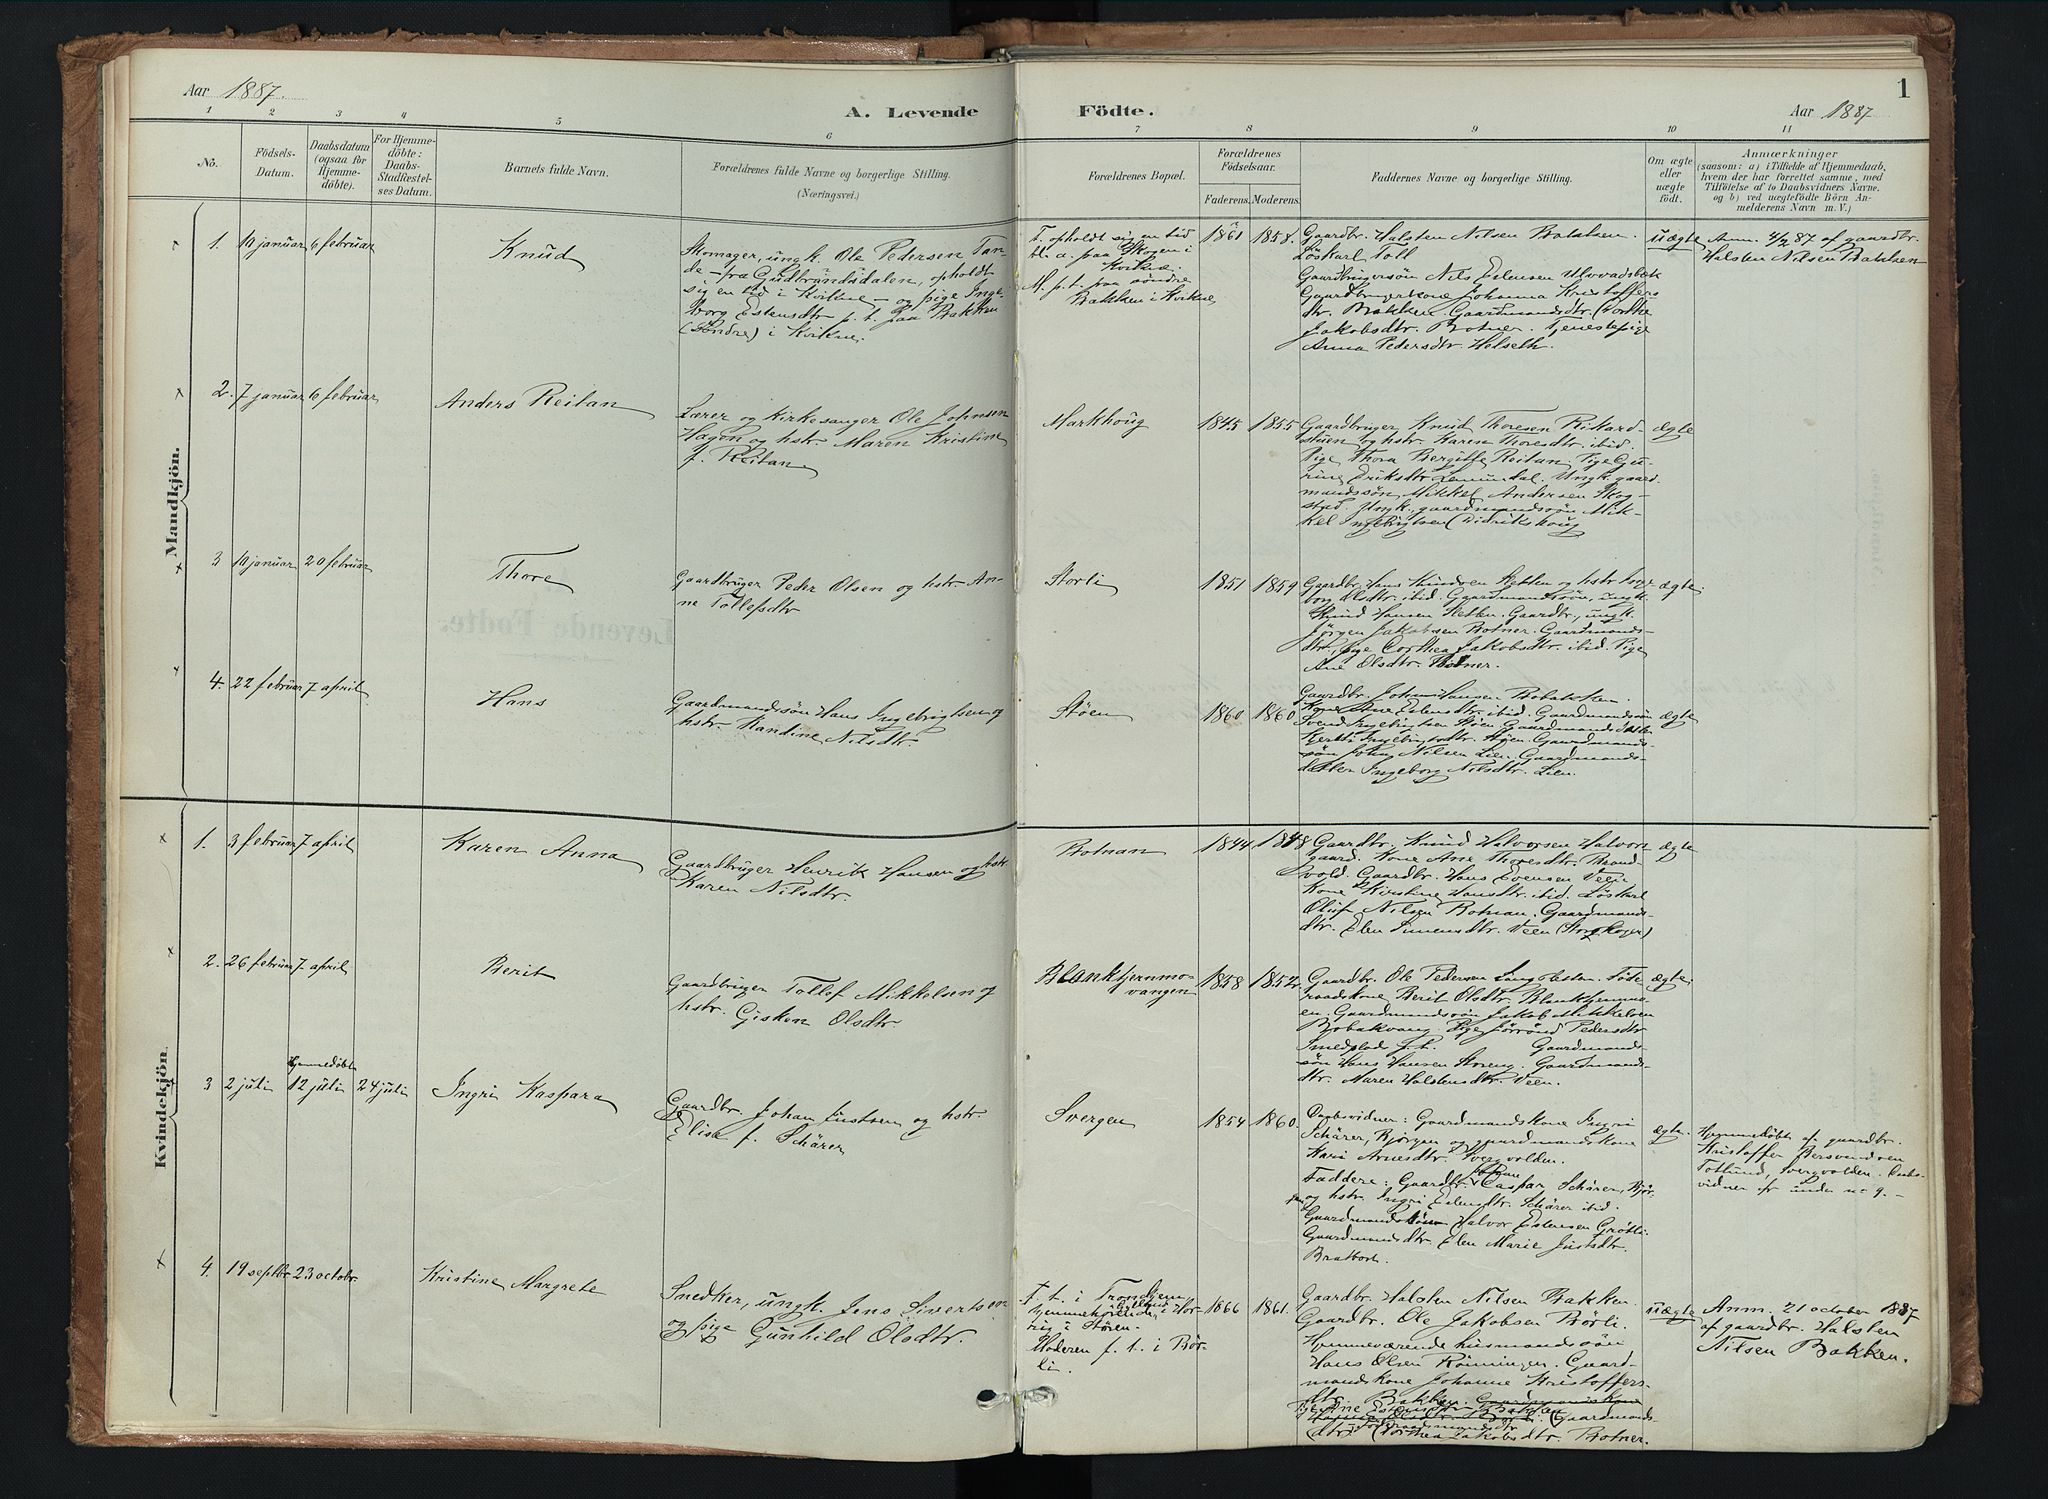 Aar 1887.
A. Levende Födte.
1
Aar 1887
1 2 3 4 5 6 7 8 9 10 11
No.
Födsels-
Datum.
Daabsdatum
(ogsaa for
Hjemme-
döbte).
For Hjemme-
döbte:
Daabs-
Stadfæstel-
ses Datum.
Barnets fulde Navn.
Forældrenes fulde Navne og borgerlige Stilling.
(Næringsvei.)
Forældrenes Bopæl.
Forældrenes
Födselsaar.
Faderens. Moderens.
Faddernes Navne og borgerlige Stilling.
Om ægte
eller
uægte
födt.
Anmærkninger
(saasom: a) i Tilfælde af Hjemmedaab,
hvem der har forrettet samme, med
Tilföielse af to Daabsvidners Navne.
og b) ved uægtefödte Börn An-
melderens Navn m.V.)
Mandkjön.
1. 10 januar 6 februar
Knud
Skomager, ungk. Ole Pedersen Tan-
de - fra Gudbrandsdalen, opholdt
sig en tid i Kvikne - og pige Inge-
borg Estensdtr p. t. paa Bakken
(Söndre) i Kvikne.
F. opholdt sig en tid
bl. a. paa Skogen i
Kvikne.
M. p. t. paa söndre
Bakken i Kvikne,
1861 1858.
Gaardbr. Halsten Nilsen Bakken.
Löskarl Toll
Gaardbrugersön Nils Estensen Ulvvadsbæk
Gaardbrugerkone Johanna Kristoffers
dtr. Bakken. Gaardmandsdtr. Dorthe
Jakobsdtr. Botner. Tjenestepige
Anna Pedersdtr. Helseth.
uægte
Anm. 4/2 87 af gaardbr.
Halsten Nilsen Bakken
2. 7 januar 6 februar
Anders Reitan
Lærer og kirkesanger Ole Johnsen
Hagen og hstr Maren Kristine
f. Reitan
Markhoug
1845 1855
Gaardbruger Knud Thoresen Rikard-
stuen og hstr. Karen Thoresdtr. ibid.
Pige Thora Bergitte Reitan. Pige Gu-
rine Eriksdtr. Ungk. gaard-
mandssön Mikkel Andersen Skog-
stad. Ungk. gaardmandssön Mik-
kel Ingebrigtsen Didrikshoug
ægte
3 10 januar 20 februar
Thore
Gaardbruger Peder Olsen og hstr. An-
ne Tollefsdtr
Storli
1851 1859
Gaardbr. Hans Knudsen Stetten og hstr Inge-
borg Olsdtr. ibid. Gaardmandssön, ungk.
Knud Hansen Stetten. Gaardbr., ungk.
Jörgen Jakobsen Botner. Gaardmands-
dtr, pige Dorthea Jakobsdtr. ibid. Pige
Ane Olsdtr. Botner.
ægte,
4. 22 februar 7 april
Hans
Gaardmandssön Hans Ingebrigtsen og
hstr. Randine Nilsdtr.
Stöen
1860 1860
Gaardbr. John Hansen Bobakken.
Kone Ane Estensdtr. ibid. Gaardmandssön
Svend Ingebrigtsen Stöen. Gaardmandsdatter
Kjersti Ingebrigtsdtr. Stöen. Gaardmands-
sön John Nilsen Lien. Gaardmands-
datter Ingeborg Nilsdtr. Lien.
ægte
Kvindekjön.
1. 3 februar 7 april
Karen Anna
Gaardbruger Henrik Hansen og hst.
Karen Nilsdtr.
Botnan
1844 1848
Gaardbr. Knud Halvorsen Halvors-
gaard. Kone Ane Thoresdtr. Brand-
vold. Gaardbr. Hans Evensen Veen
Kone Kirstine Hansdtr. ibid. Löskarl
Oluf Nilsen Botnan. Gaardmands-
dtr. Elen Simensdtr. Veen (Storskogen)
ægte
2. 26 februar 7 april
Berit
Gaardbruger Tollef Mikkelsen og
hstr. Gisken Olsdtr
Blankhjernmo-
vangen
1858 1852.
Gaardbr. Ole Pedersen Fode-
raadskone Berit Olsdtr. Blankhjernmo-
en. Gaardmandssön Jakob Mikkelsen
Bobakvang. Pige Jörrönd Pedersdtr
Smedplads p. t. Gaardmands-
sön Hans Hansen Storeng. Gaardmands-
dtr. Maren Halstensdtr. Veen.
ægte.
3 2 juli
Hjemmedöbt
12 juli 24 juli
Ingri Kaspara
Gaardbr. Johan Justsen og hstr.
Elise f. Schärer
Svergen
1854 1860.
Daabsvidner: Gaardmandskone Ingri
Schärer, Bjørgen og gaardmandskone
Kari Arnesdtr. Svergvolden.
Faddere: Gaardbr. Johan Caspar Schärer, Björ-
gen og hstr. Ingri Estensdtr. Schärer ibid.
Gaardmandssön Halvor Estensen Grötli.
Gaardmandsdtr. Elen Marie Justsdtr.
Bratbort.
ægte.
Hjemmedöbt af gaardbr.
Kristoffer Bersvendsen
Totlund, Svergvolden. Daabs-
vidner se under no 9.-
4. 19 septbr. 23 octobr.
Kristine Margrete
Snedker, ungk. Jens Sivertsen
og pige Gunhild Olsdtr.
F. t. i Trondhjem
hjemmehörende i Hor-
rig i Stören.
Moderen p. t. i Bör-
li.
1866 1861.
Gaardbr. Halsten Nilsen Bakken.
Gaardbr. Ole Jakobsen Börli.
Hjemmeværende husmandssön
Hans Olsen Rönningen. Gaard-
mandskone Johanne Kristoffers-
dtr. Bakken. Gaardmandskone
Pige Ane Estensdtr. Bakken
Gaardmands-
dtr. Dorthea Jakobsdtr. Botner.
uægte
Anm. 21 october 1887
af gaardbr. Halsten
Nilsen Bakken.